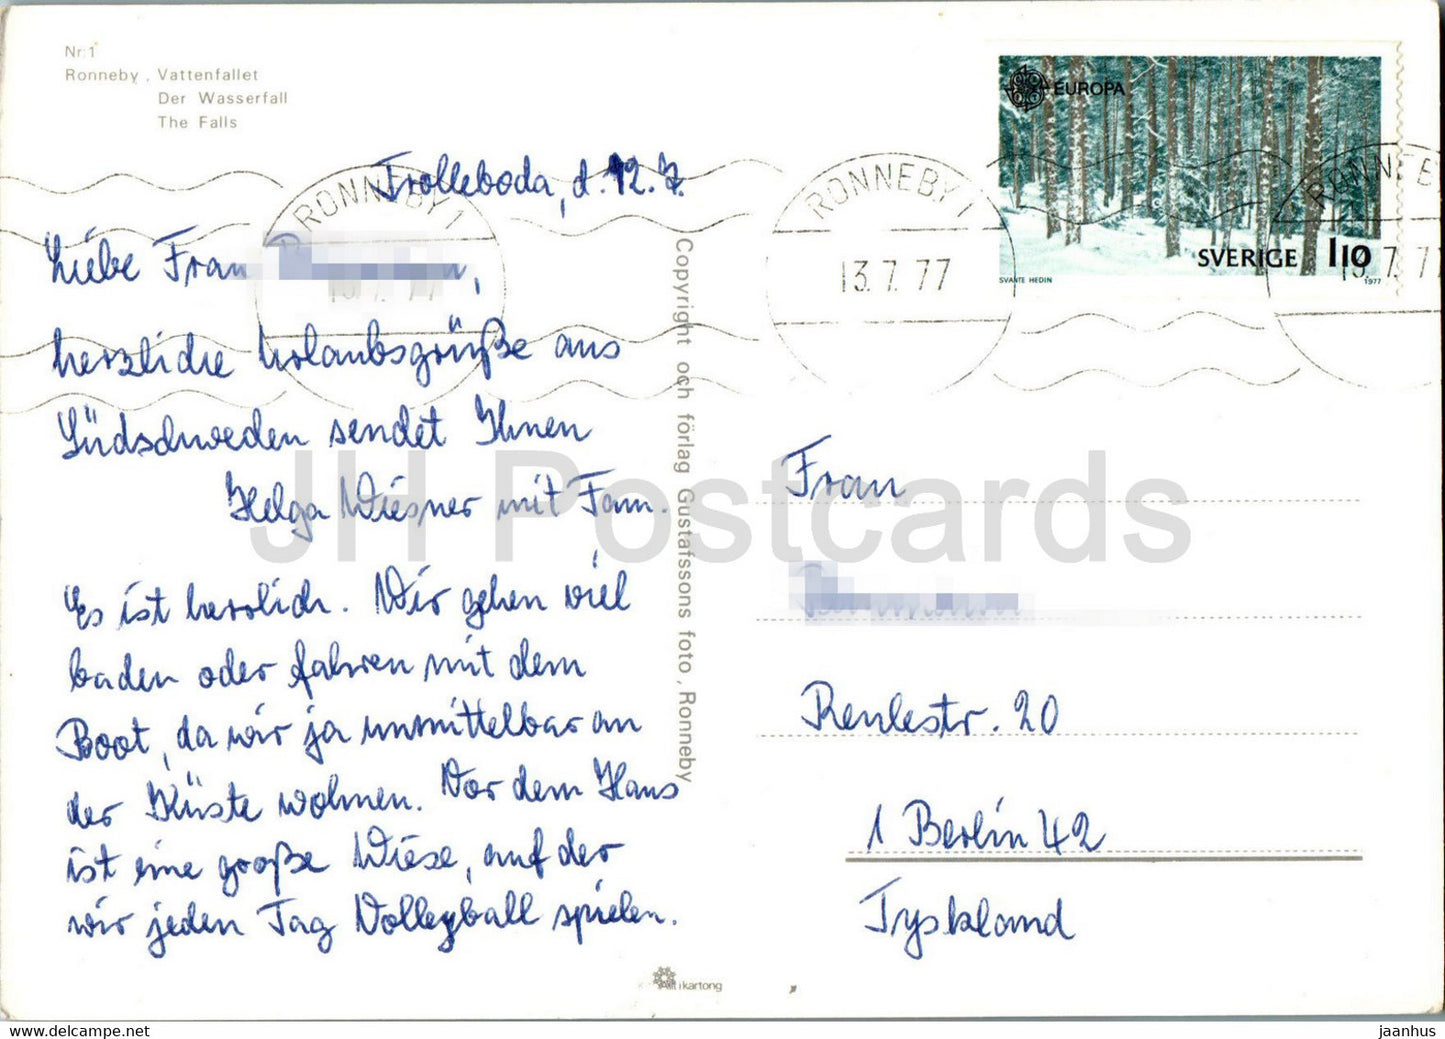 Nr.1
Ronneby, Vattenfallet
Der Wasserfall
The Falls
Trolleboda, d. 12.7.
Liebe Frau
herzliche Urlaubsgrüße aus
Südschweden sendet Ihnen
Helga Wiesner mit Fam.
Es ist herrlich. Wir gehen viel
baden oder fahren mit dem
Boot, da wir ja unmittelbar an
der Küste wohnen. Vor dem Haus
ist eine große Wiese, auf der
wir jeden Tag Volleyball spielen.
Copyright och förlag Gustafssons foto, Ronneby
RONNEBY 1
13.7.77
RONNEBY 1
13.7.77
RONNEBY
13.7.77
EUROPA
SVERIGE 110
SVANTE HEDIN 1977
Frau
Reulestr. 20
1 Berlin 42
Tyskland
kartong
JH Postcards
https://www.delcampe.net
jaanhus